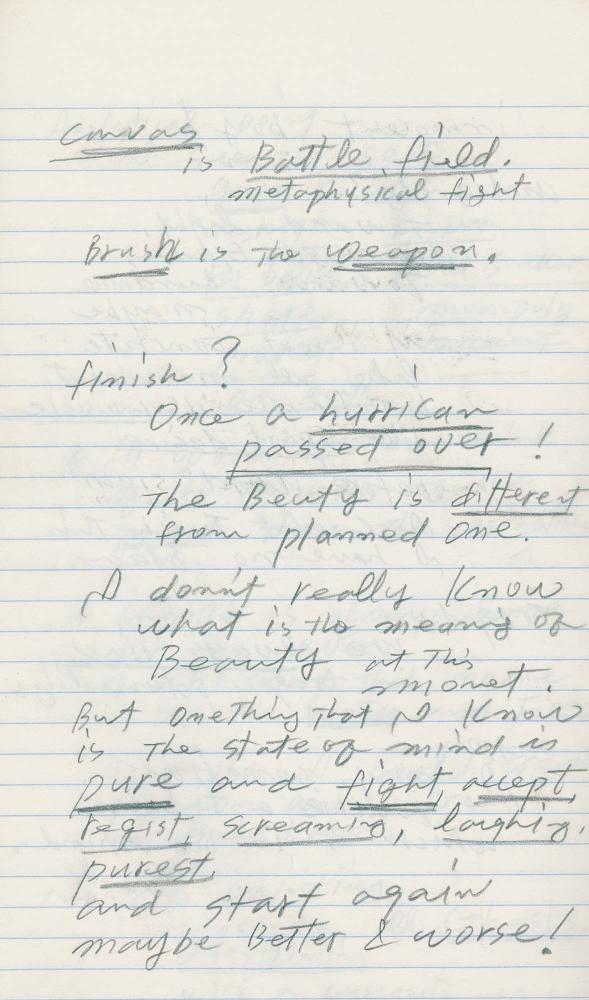 Canvas
is Battle field.
metaphysical fight
Brush is the weapon.
finish?
Once a hurrican
passed over!
The Beuty is different
from planned one.
I donn't really know
what is the meanig of
Beauty at This
monet.
But onething That I Know
is The state of mind is
pure and fight, accept,
regist, screaming, laughig,
purest,
and start again
maybe Better & worse!